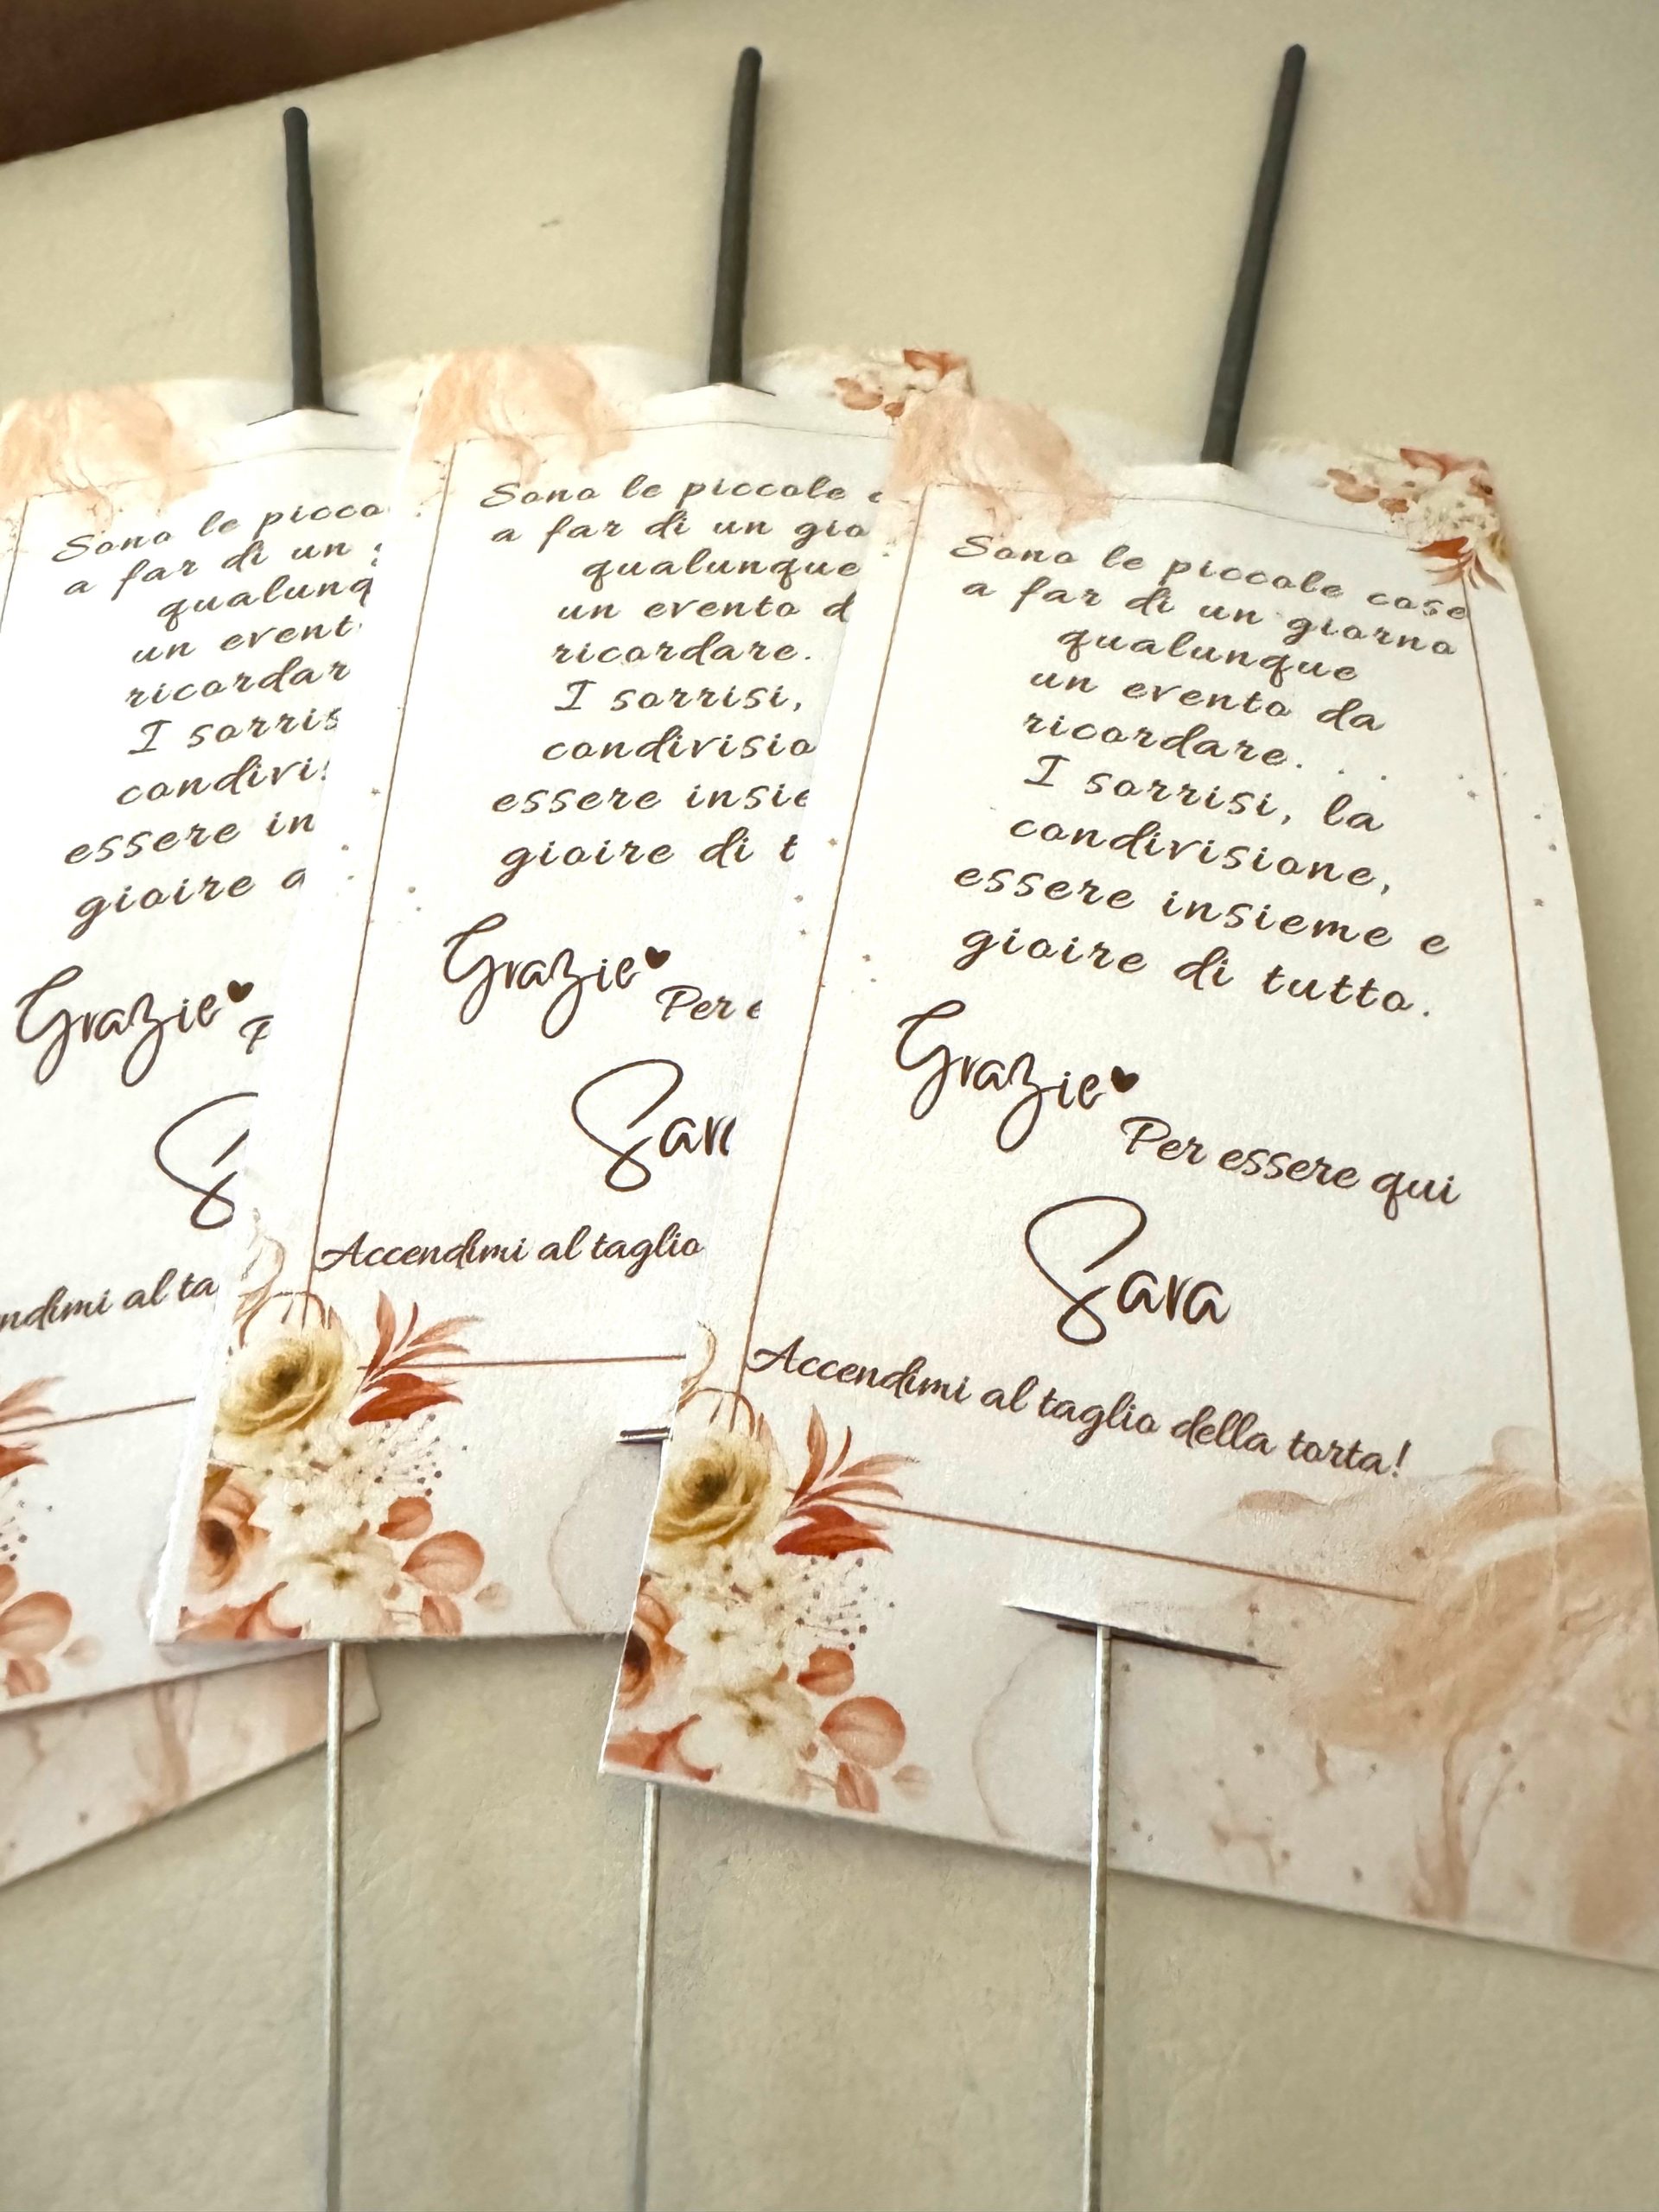 Sono le picco
a far di un
qualunq
un event
ricordar
I sorris
condivi
essere in
gioire
Grazie
S
ndimi al ta
Sono le piccole
a far di un gio
qualunque
un evento d
ricordare.
I sorrisi,
condivisio
essere insie
gioire di t
Grazie
Per e
Sara
Accendimi al taglio
Sono le piccole cose
a far di un giorno
qualunque
un evento da
ricordare. . .
I sorrisi, la
condivisione,
essere insieme e
gioire di tutto.
Grazie
Per essere qui
Sara
Accendimi al taglio della torta!